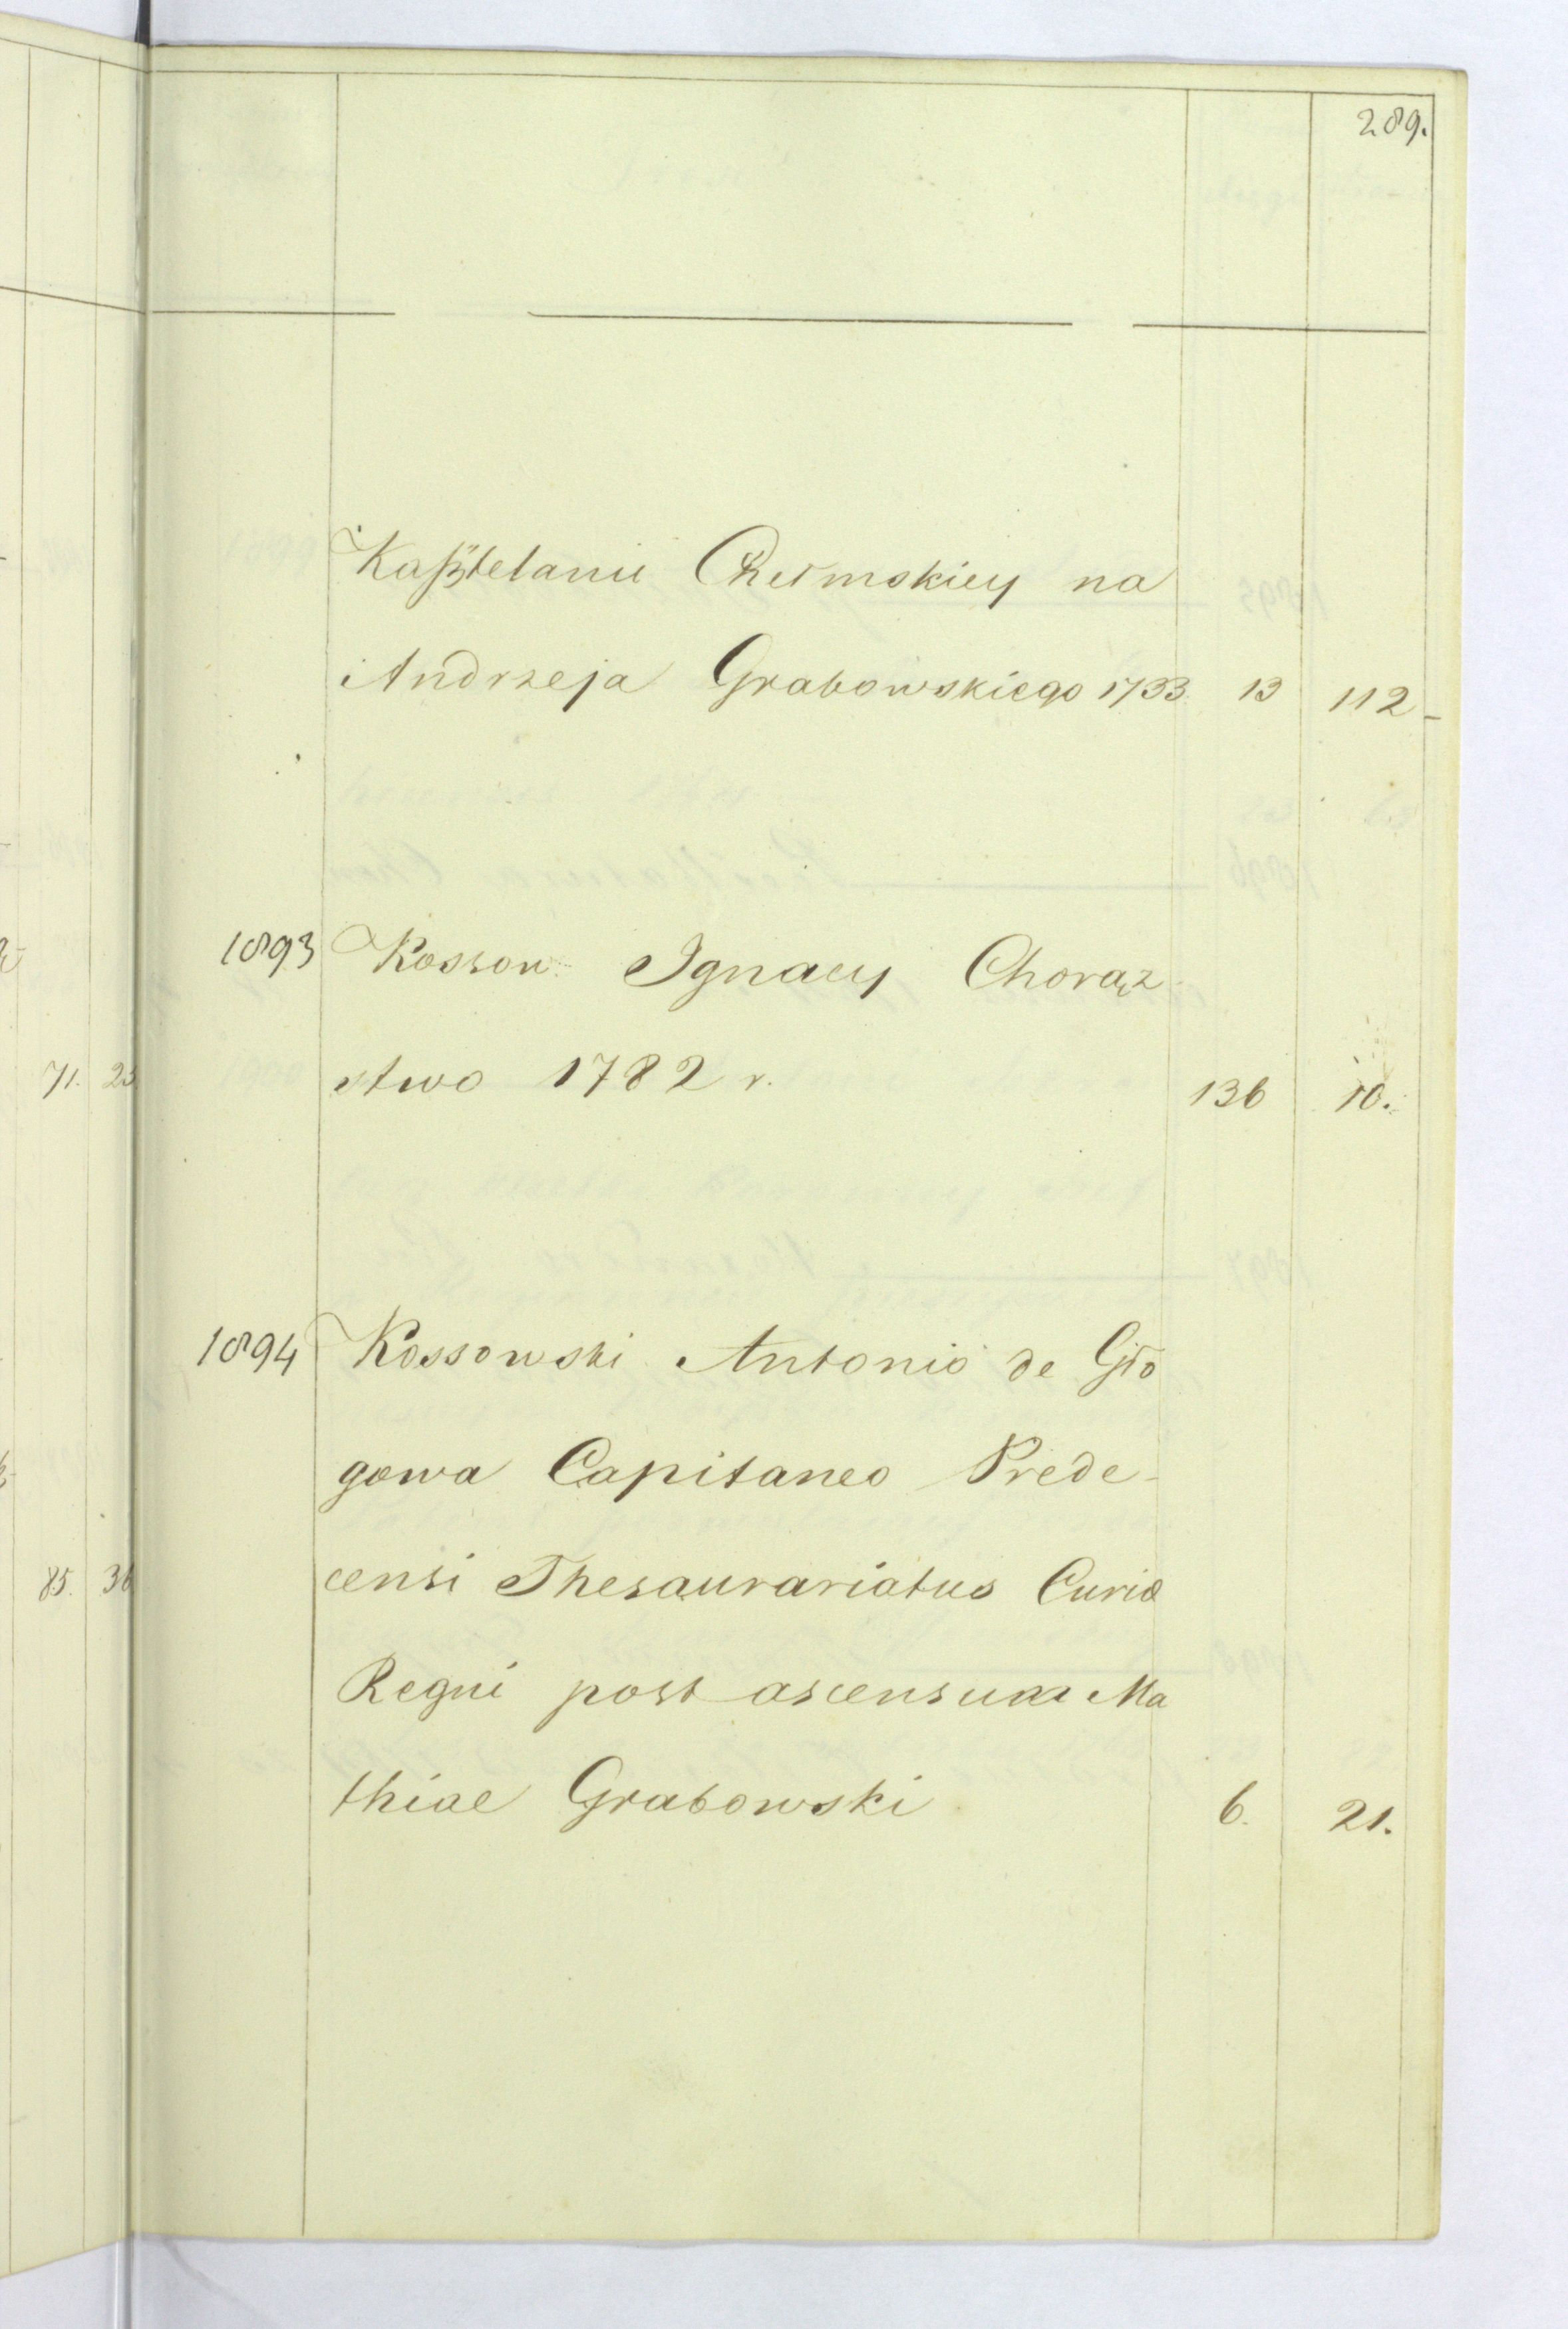 289.
Kasztelanii Chełmskiey na
Andrzeja Grabowskiego 1733 13 112-
1893 Kossow Ignacy Chorąż-
71. 23 stwo 1782 r. 136 10.
1894 Kossowski Antonio de Gło
gowa Capitaneo Prede-
85. 36 censi Thesaurariatus Curiæ
Regni post ascensum Ma
thiae Grabowski 6. 21.